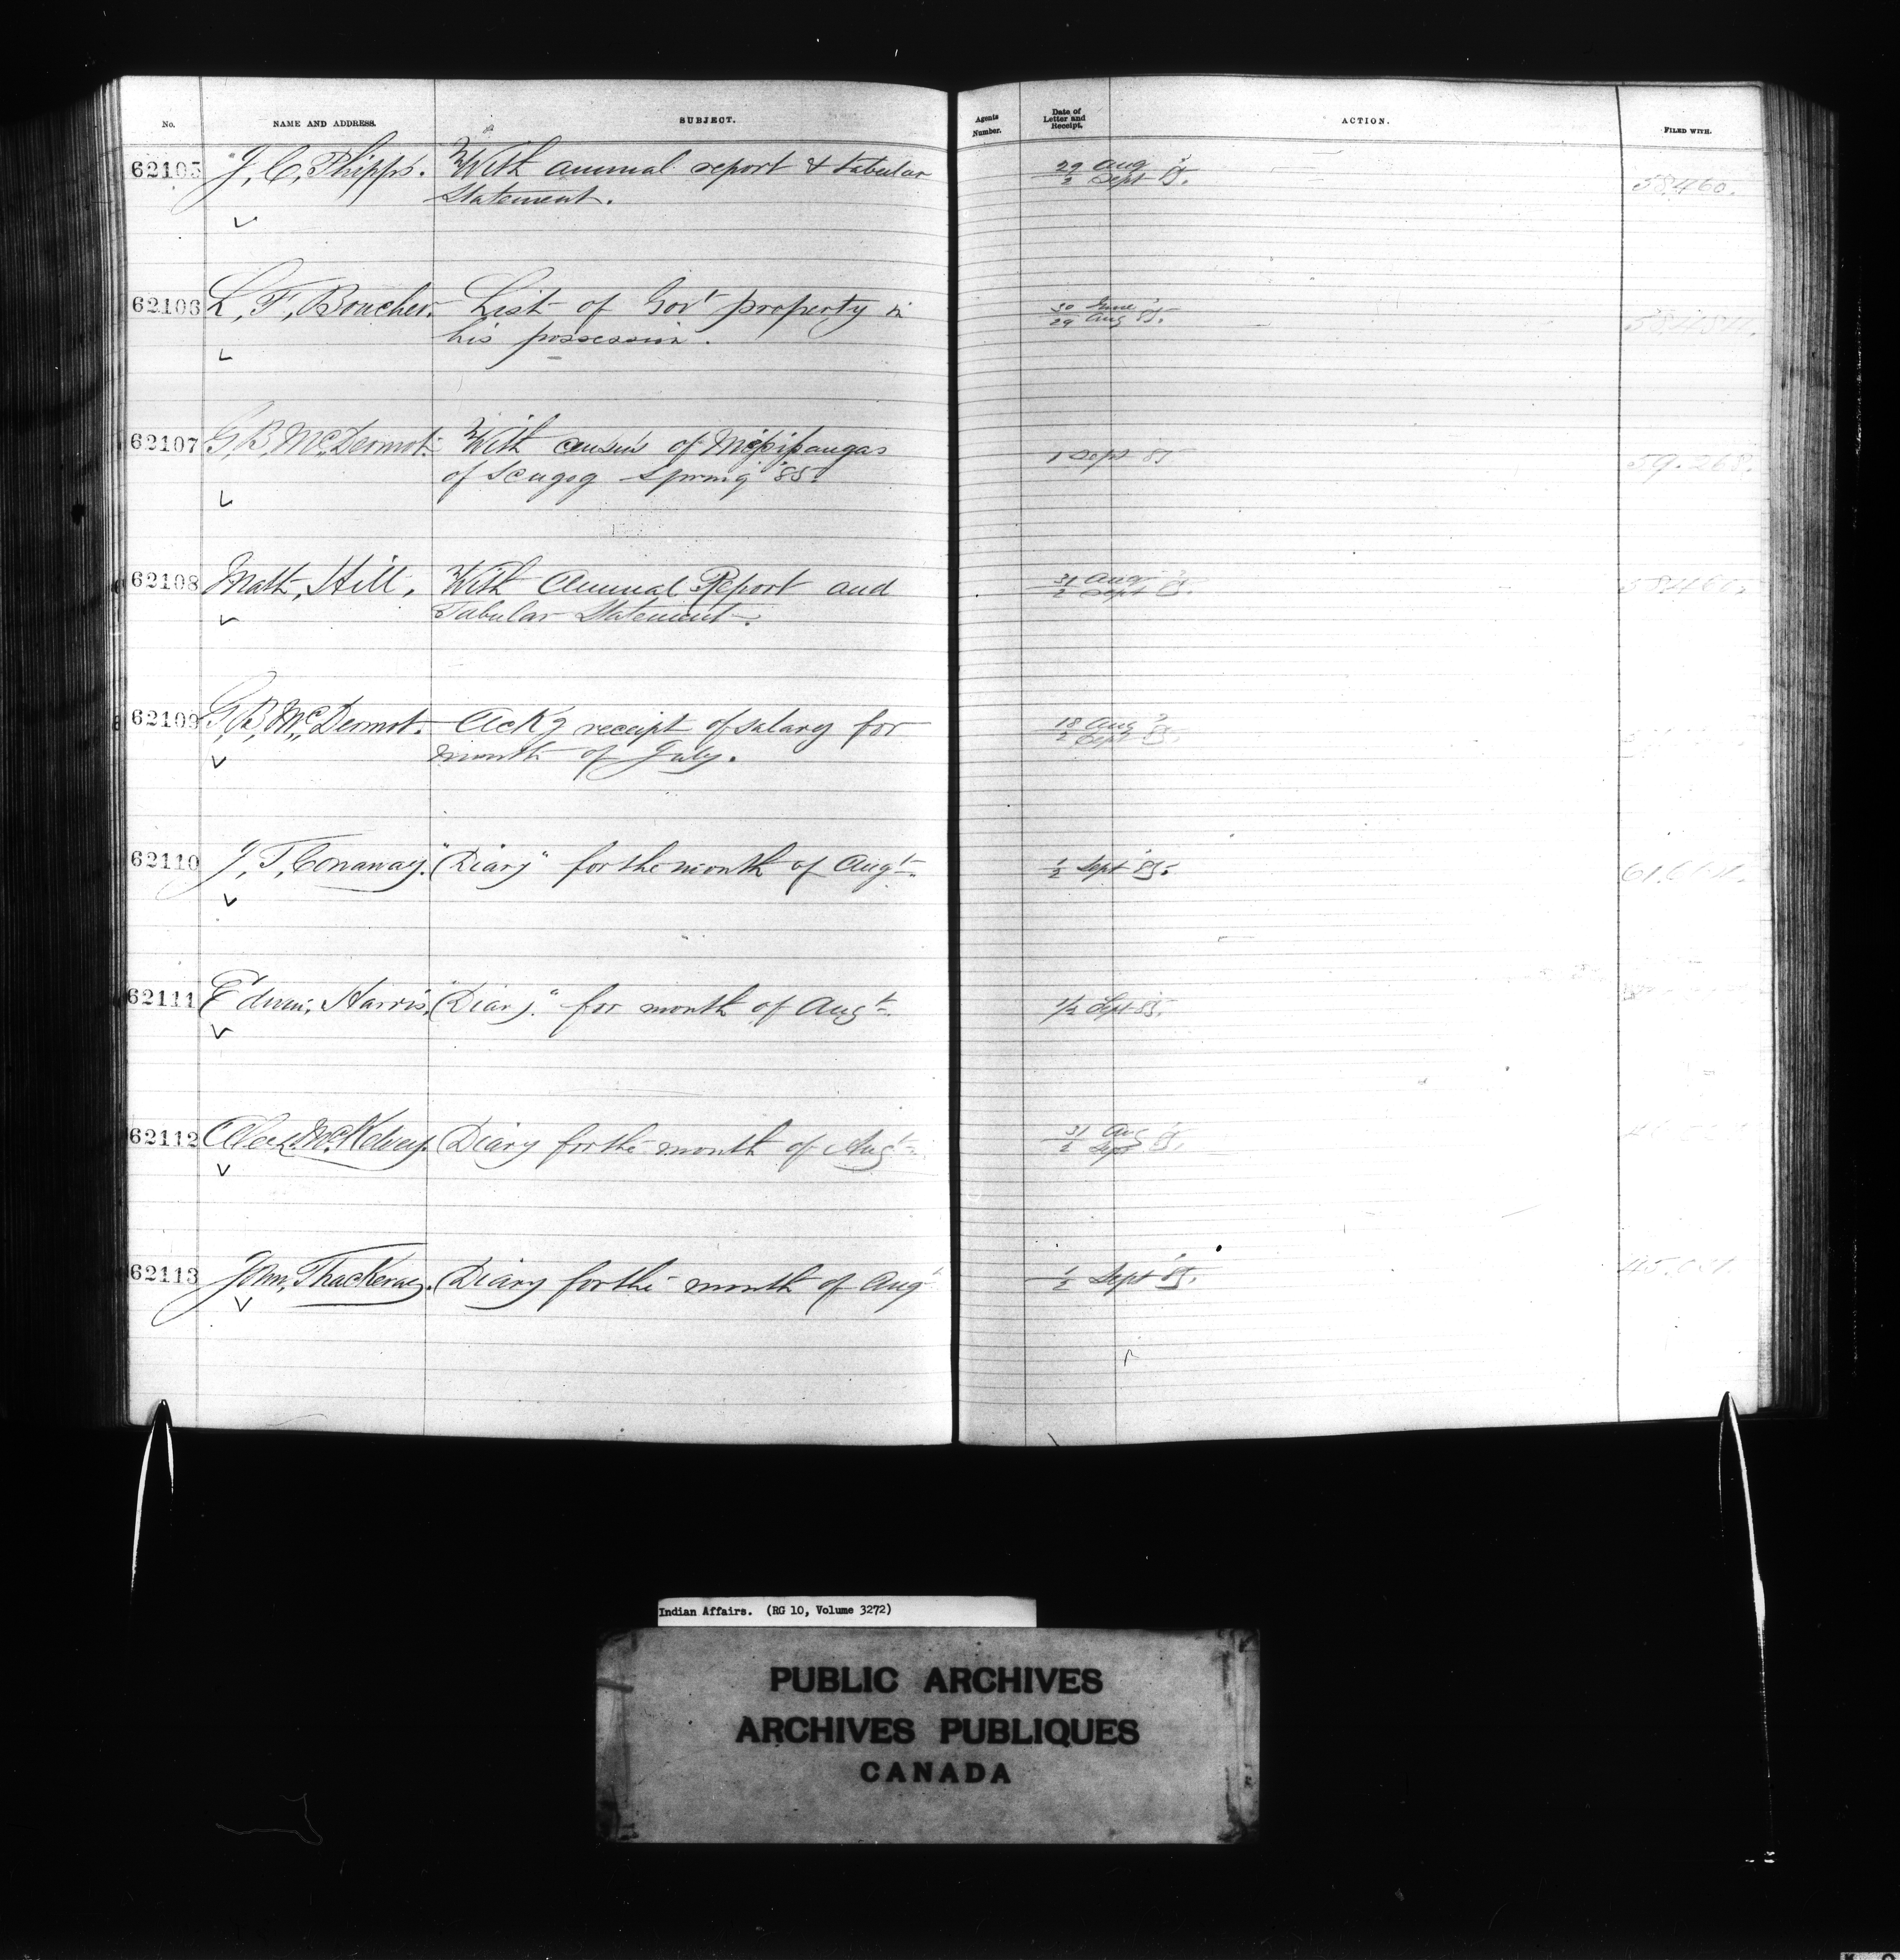 No. NAME AND ADDRESS. SUBJECT. Agents Number. Date of Letter and Receipt. ACTION. FILED WITH.
62105 J, C, Phipps. With annual report & tabular 29 Aug '85.
Statement. 2 Sept 58460.
62106 L, F, Boucher. List of Govt property in 30 June '85.
his possession. 29 Aug
62107 G, B, McDermot. With census of Mississaugas
of Scugog Spring '85. 1 Sept 85 59.268.
62108 Math, Hill, With Annual Report and 31 Aug '85.
Tabular Statement. 2 Sept 58460.
62109 G, B, Mc,, Dermot. Ackg receipt of salary for 18 Aug '85.
month of July. 2 Sept
62110 J, T, Conaway. "Diary" for the month of Augt. 1/2 Sept '85.
62111 Edwin, Harris, "Diary." for month of Augt. 1/2 Sept 85.
62112 Alex, McKelvey. Diary for the month of Augt. 31 Aug '85.
2 Sept
62113 John, Thackeray. Diary for the month of Augt 1/2 Sept '85.
Indian Affairs. (RG 10, Volume 3272)
PUBLIC ARCHIVES
ARCHIVES PUBLIQUES
CANADA